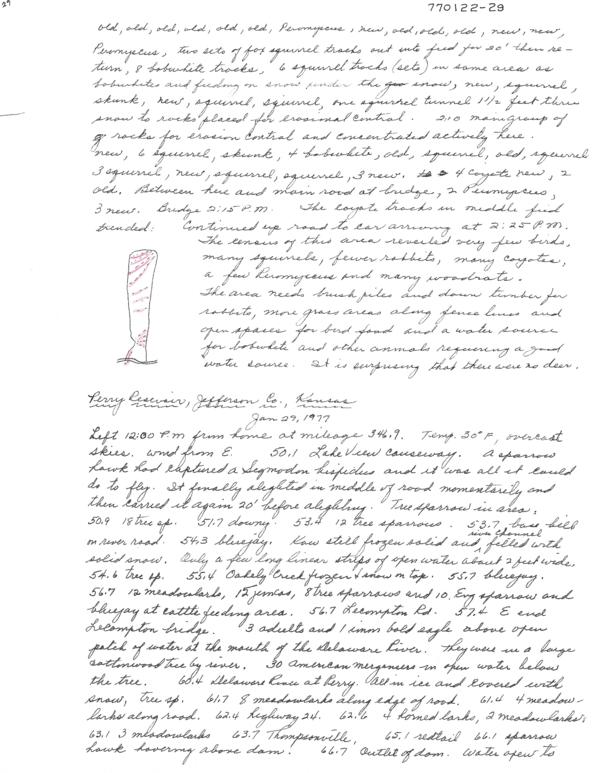 29
770122-29
old, old, old, old, old, old, Peromyscus, new, old, old, old, new, new,
Peromyscus, two sets of fox squirrel tracks out into field for 20' then re-
turn, 8 bobwhite tracks, 6 squirrel tracks (sets) in same area as
bobwhites and feeding on snow under the snow, new, squirrel,
skunk, new, squirrel, squirrel, one squirrel tunnel 1 1/2 feet thru
snow to rocks placed for erosional control. 2:10 main group of
rocks for erosion control and concentrated activity here.
new, 6 squirrel, skunk, 4 bobwhite, old, squirrel, old, squirrel
3 squirrel, new, squirrel, squirrel, 3 new. 4 coyote new, 2
old. Between here and main road at bridge, 2 Peromyscus,
3 new. Bridge 2:15 P.M. The coyote tracks in middle field
trended: Continued up road to car arriving at 2:25 P.M.
The census of this area revealed very few birds,
many squirrels, fewer rabbits, many coyotes,
a few Peromyscus and many woodrats.
The area needs brush piles and down timber for
rabbits, more grass areas along fence lines and
open spaces for bird food and a water source
for bobwhite and other animals requiring a good
water source. It is surprising that there were no deer.
Perry Resevoir, Jefferson Co., Kansas
Jan 29, 1977
Left 12:00 P m from home at mileage 346.9. Temp. 30° F, overcast
skies. wind from E. 50.1 Lake View causeway. A sparrow
hawk had captured a Sigmodon hispidus and it was all it could
do to fly. It finally alighted in middle of road momentarily and
then carried it again 20' before alighting. Tree sparrow in area.
50.9 18 tree sp. 51.7 downy. 53.4 12 tree sparrows. 53.7 base hill
on river road. 54.3 bluejay. Kaw still frozen solid and, river channel filled with
solid snow. Only a few long linear strips of open water about 2 feet wide.
54.6 tree sp. 55.4 Oakely Creek frozen & snow on top. 55.7 bluejay.
56.7 12 meadowlarks, 12 juncos, 8 tree sparrows and 10 Eng sparrow and
bluejay at cattle feeding area. 56.7 Lecompton Rd. 57.4 E end
Lecompton bridge. 3 adults and 1 imm bald eagle above open
patch of water at the mouth of the Delaware River. They were in a large
cottonwood tree by river. 30 American mergansers in open water below
the tree. 60.4 Delaware River at Perry. All in ice and covered with
snow, tree sp. 61.7 8 meadowlarks along edge of road. 61.4 4 meadow-
larks along road. 62.4 Highway 24. 62.6 4 horned larks, 2 meadowlarks,
63.1 3 meadowlarks 63.7 Thompsonville, 65.1 redtail 66.1 sparrow
hawk hovering above dam. 66.7 Outlet of dam. Water open to